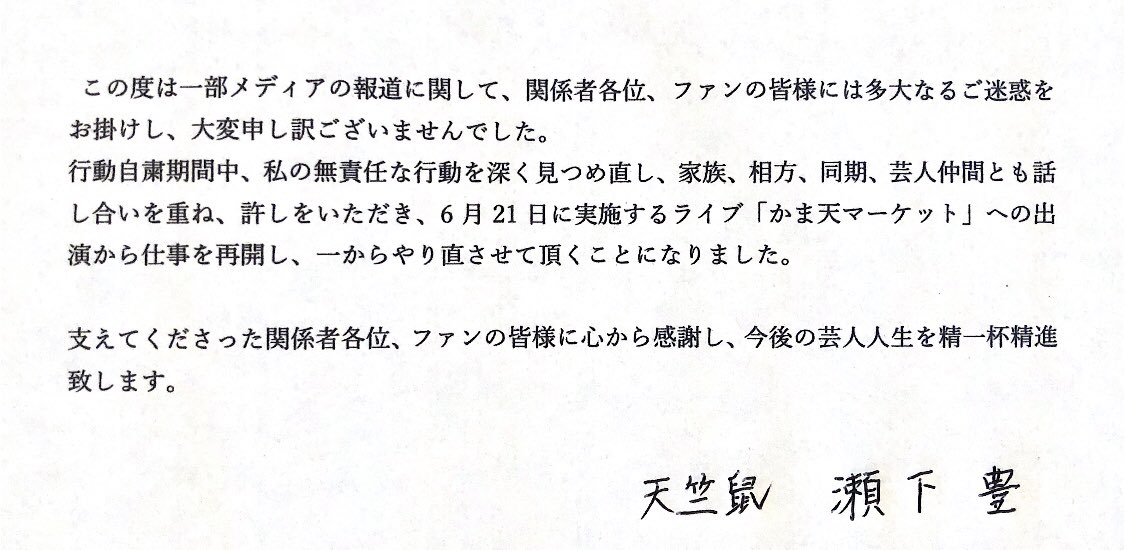 この度は一部メディアの報道に関して、関係者各位、ファンの皆様には多大なるご迷惑を
お掛けし、大変申し訳ございませんでした。
行動自粛期間中、私の無責任な行動を深く見つめ直し、家族、相方、同期、芸人仲間とも話
し合いを重ね、許しをいただき、6月21日に実施するライブ「かま天マーケット」への出
演から仕事を再開し、一からやり直させて頂くことになりました。
支えてくださった関係者各位、ファンの皆様に心から感謝し、今後の芸人人生を精一杯精進
致します。
天竺鼠 瀬下 豊